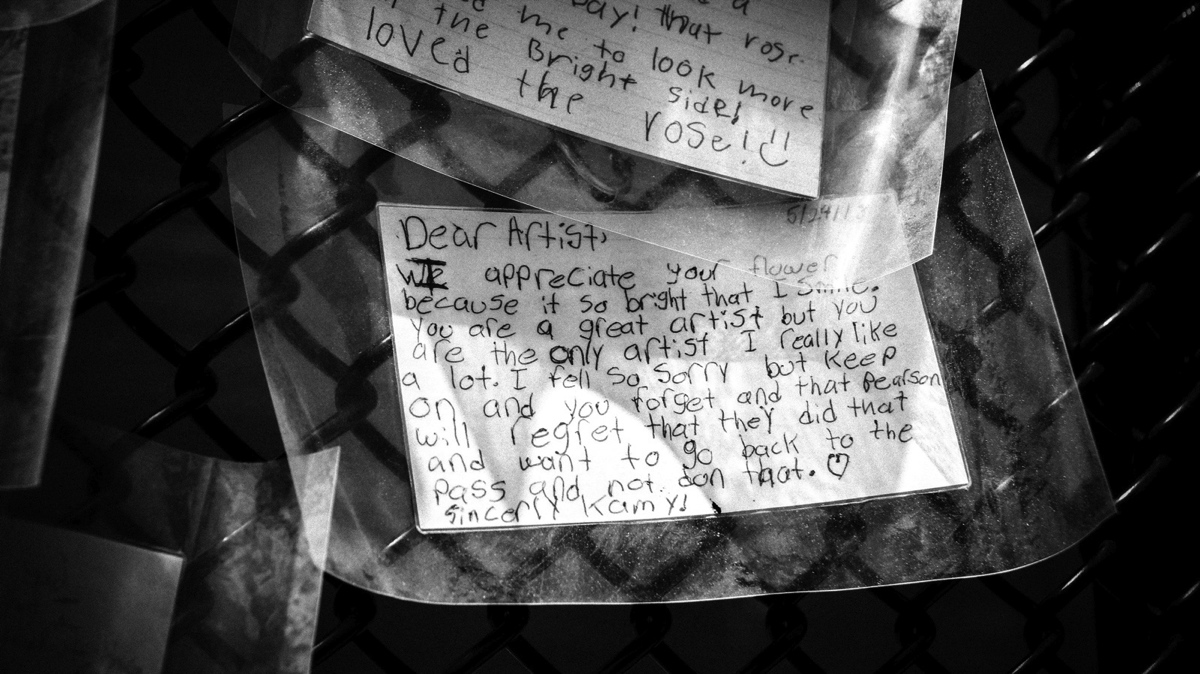 a
day! that rose
me to look more
the Bright side!
loved the rose!
5/24/13
Dear Artist,
WE appreciate your flower
because it so bright that I smile.
you are a great artist but you
are the only artist I really like
a lot. I fell so sorry but keep
on and you forget and that Pearson
will regret that they did that
and want to go back to the
pass and not don that. ♡
Sincerly Kamy!